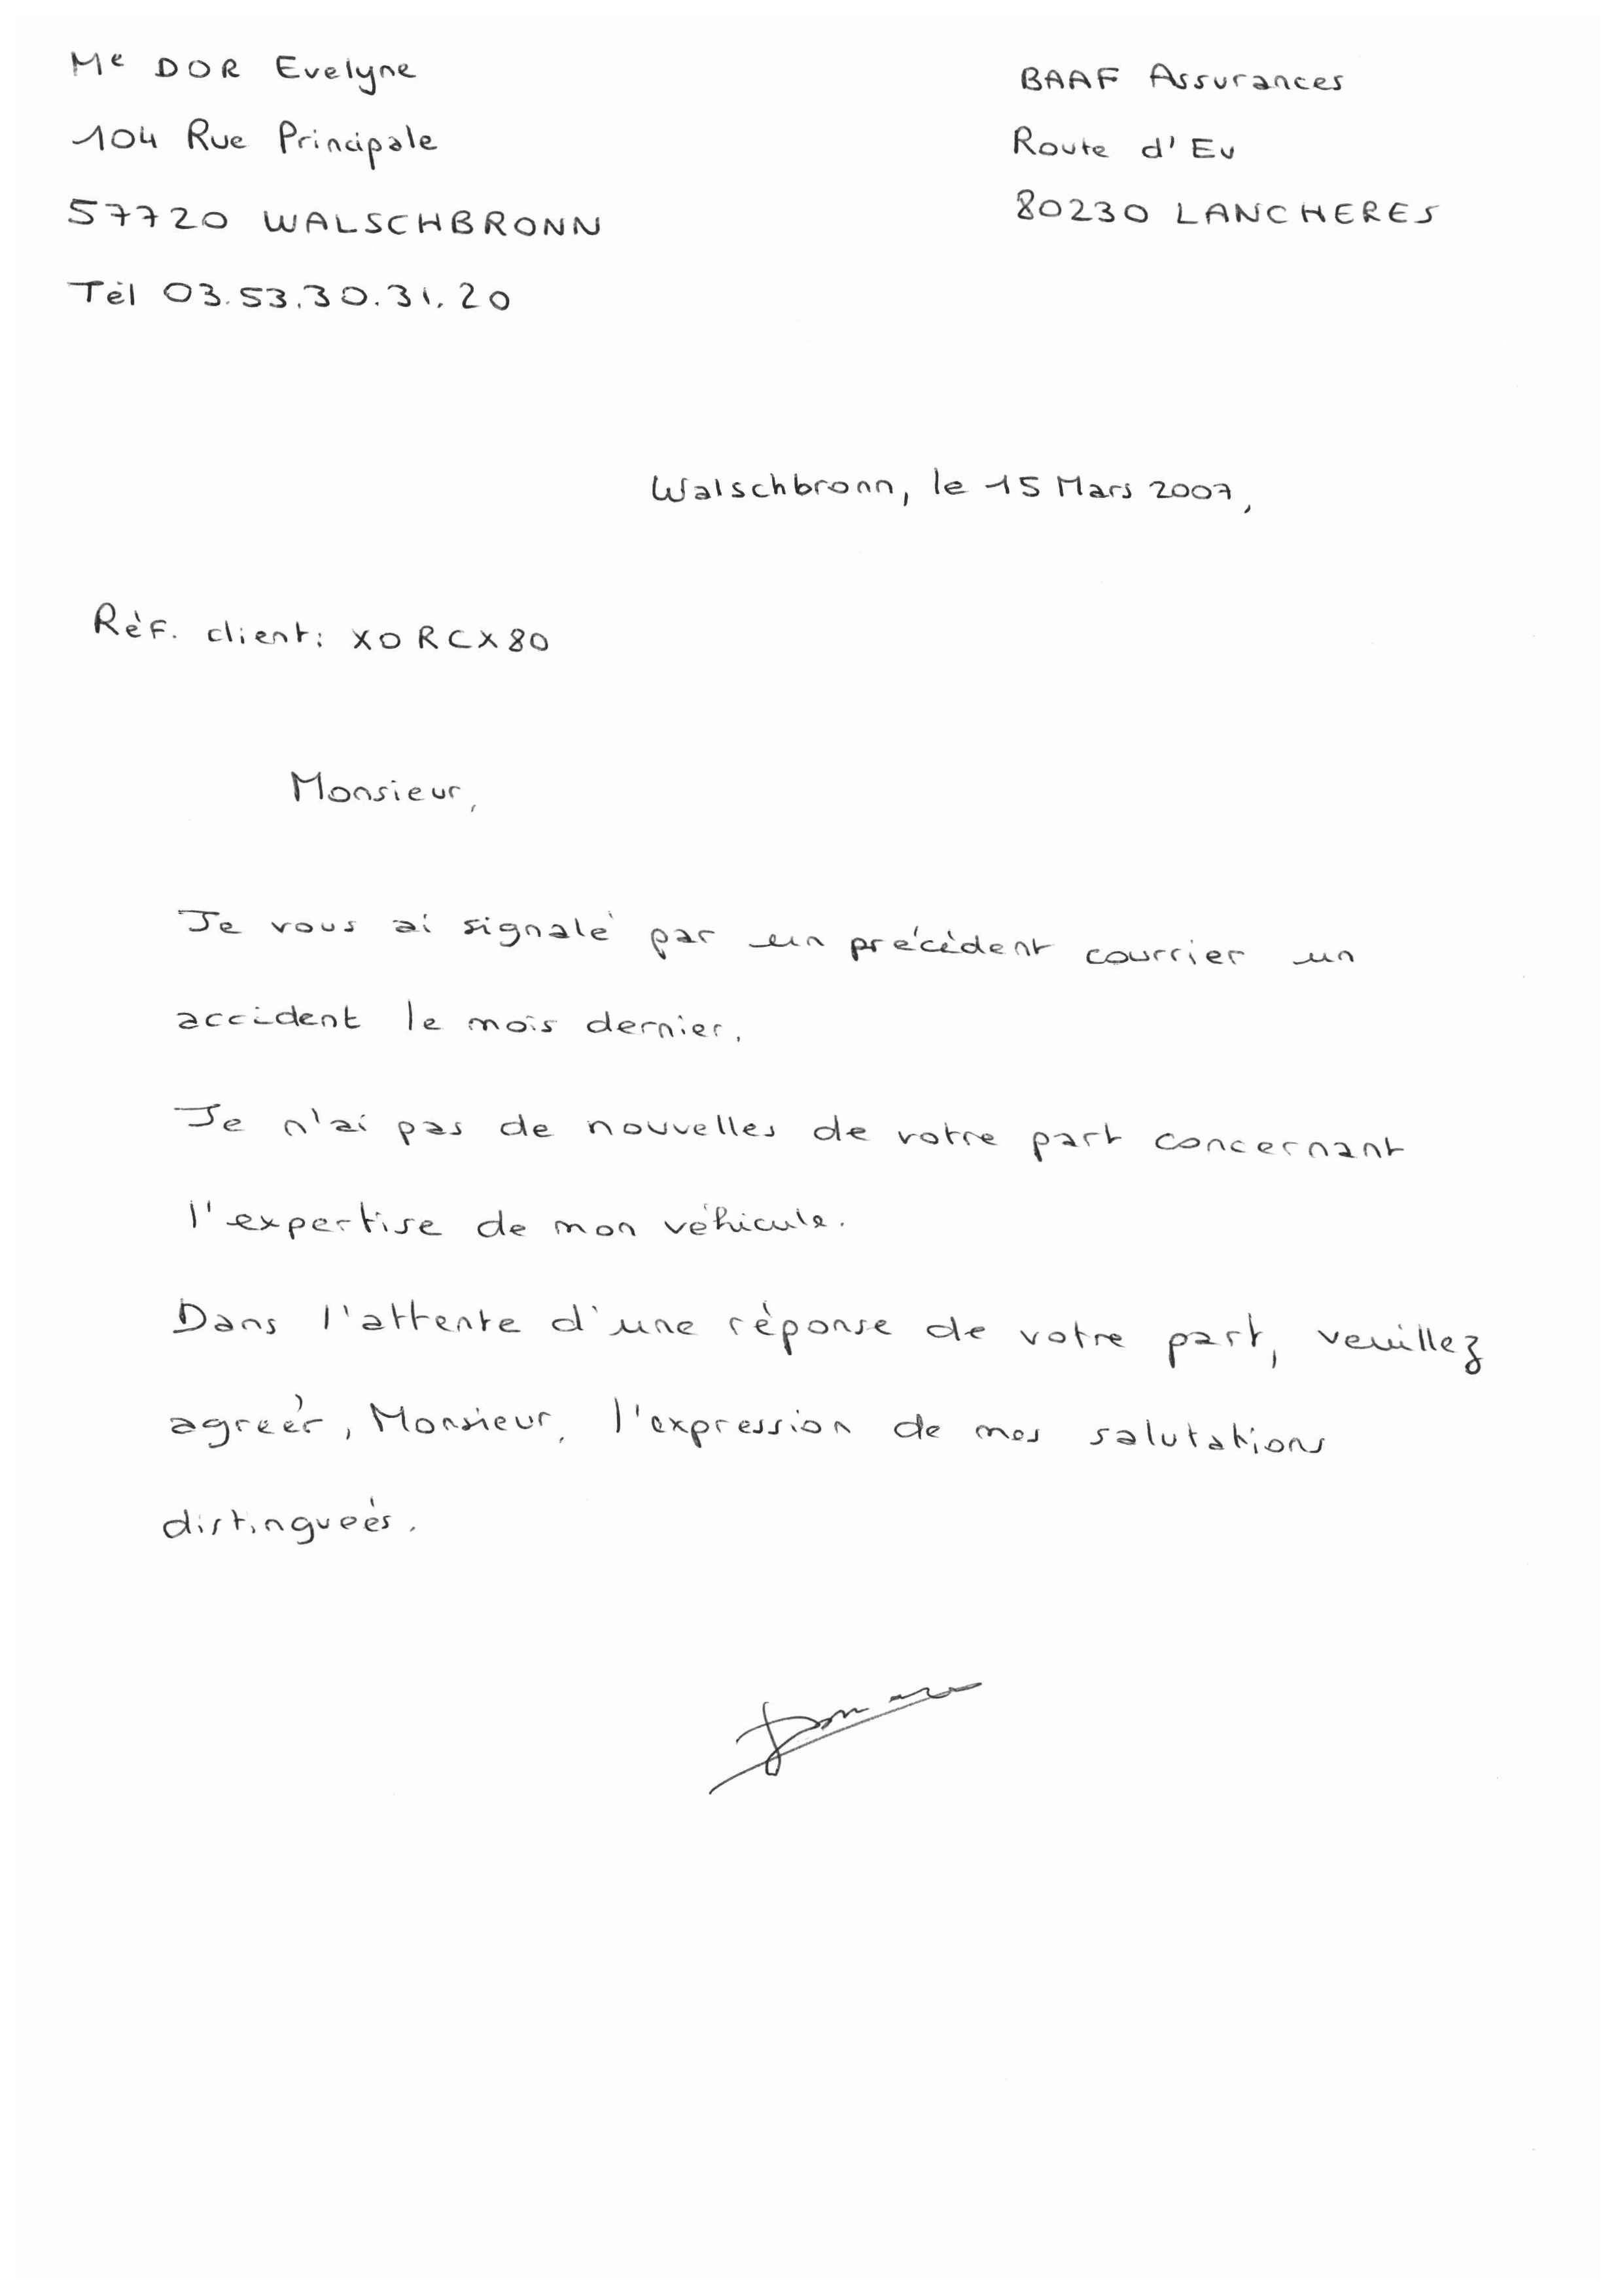 Me DOR Evelyne
104 Rue Principale
57720 WALSCHBRONN
Tèl 03.53.30.31.20
BAAF Assurances
Route d'Eu
80230 LANCHERES
Walschbronn, le 15 Mars 2007,
Rèf. client: XORCX80
Monsieur,
Je vous ai signalé par un précèdent courrier un
accident le mois dernier.
Je n'ai pas de nouvelles de votre part concernant
l'expertise de mon véhicule.
Dans l'attente d'une rèponse de votre part, veuillez
agréer, Monsieur, l'expression de mes salutations
distinguées.